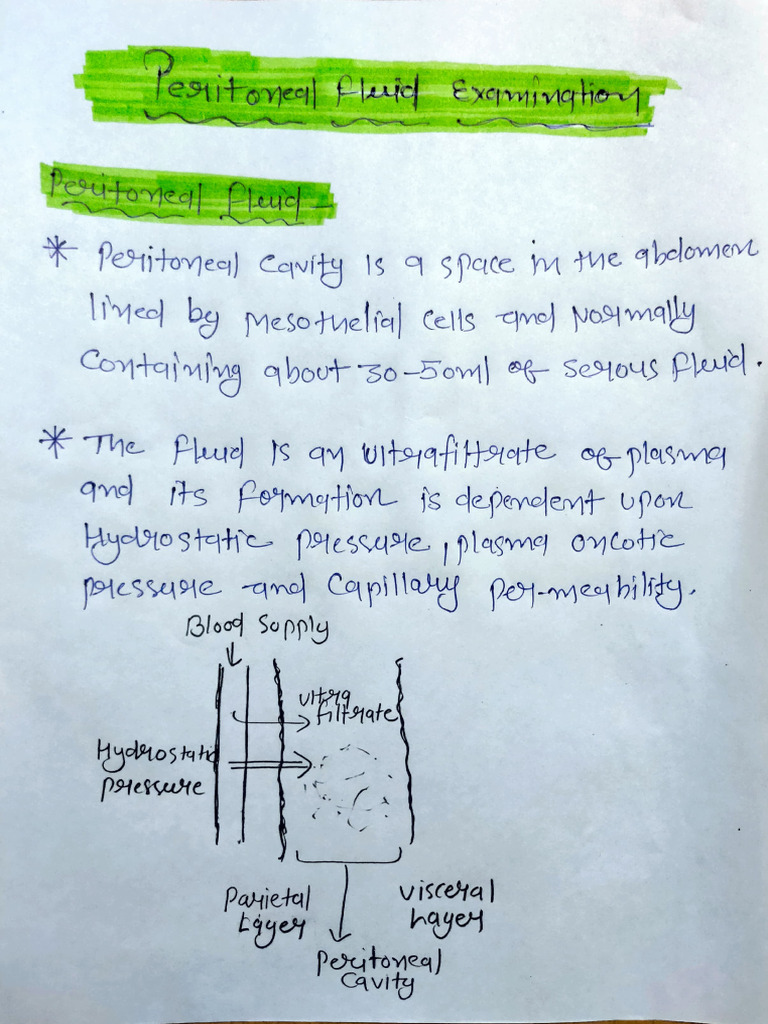 Peritoneal Fluid Examination
Peritoneal Fluid -
* Peritoneal Cavity is a space in the abdomen
lined by Mesothelial cells and Normally
Containing about 30-50ml of serous fluid.
* The fluid is an Ultrafiltrate of plasma
and its formation is dependent upon
Hydrostatic pressure, plasma oncotic
pressure and Capillary per-meability.
Blood Supply
Ultra
filtrate
Hydrostatic
pressure
Parietal
Layer
Visceral
Layer
Peritoneal
Cavity